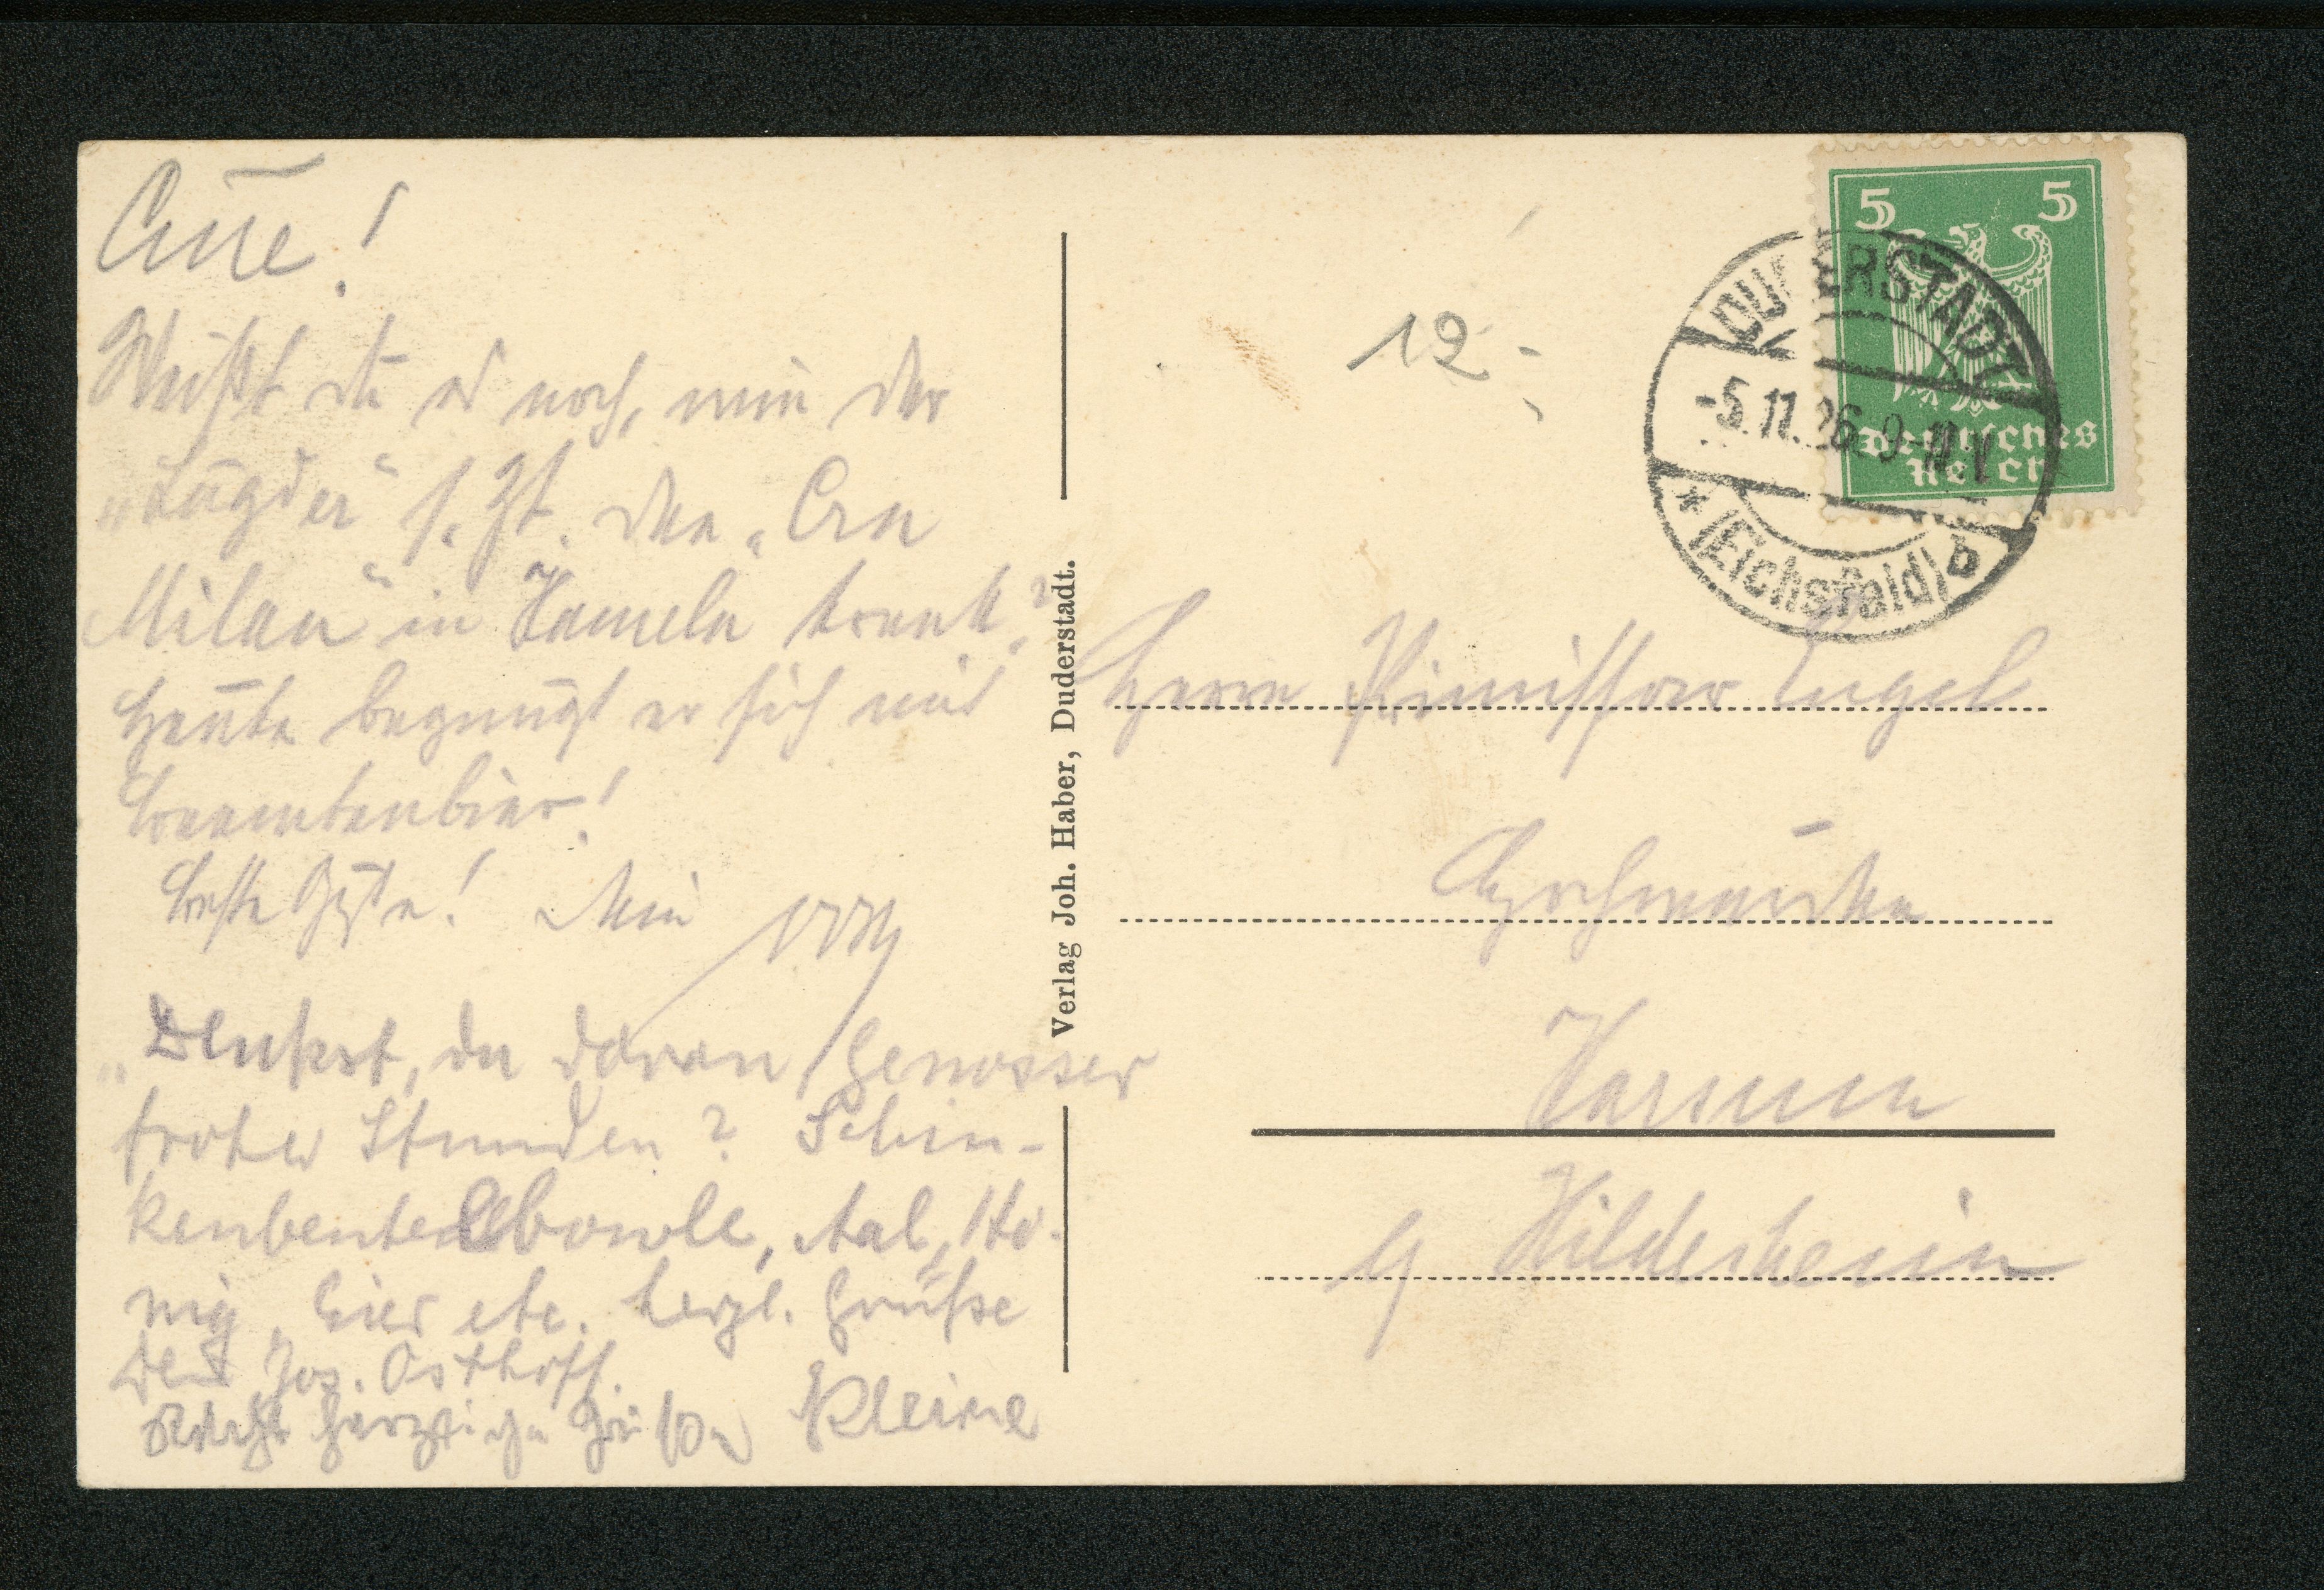 Weißt du es noch, wie der
s. Zt. den
Milan" in Hameln trank?
Heute begnügt er sich mit
Beamtenbier!
Beste Grüße! Dein
„Denkst du daran, Genosse
froher Stunden? Schin-
bowle, Aal, Ho-
nig, Bier etc. Herzl. Grüße
Dein Jos. Osthoff.
Recht herzliche Grüße Kleine
Verlag Joh. Haber, Duderstadt.
12.-
5 5
Deutsches
Reich
DUDERSTADT
-5.11.26.9-11V
* (Eichsfeld) b
Herrn Primissar Engel
Hochwürden
Harsum
b/ Hildesheim